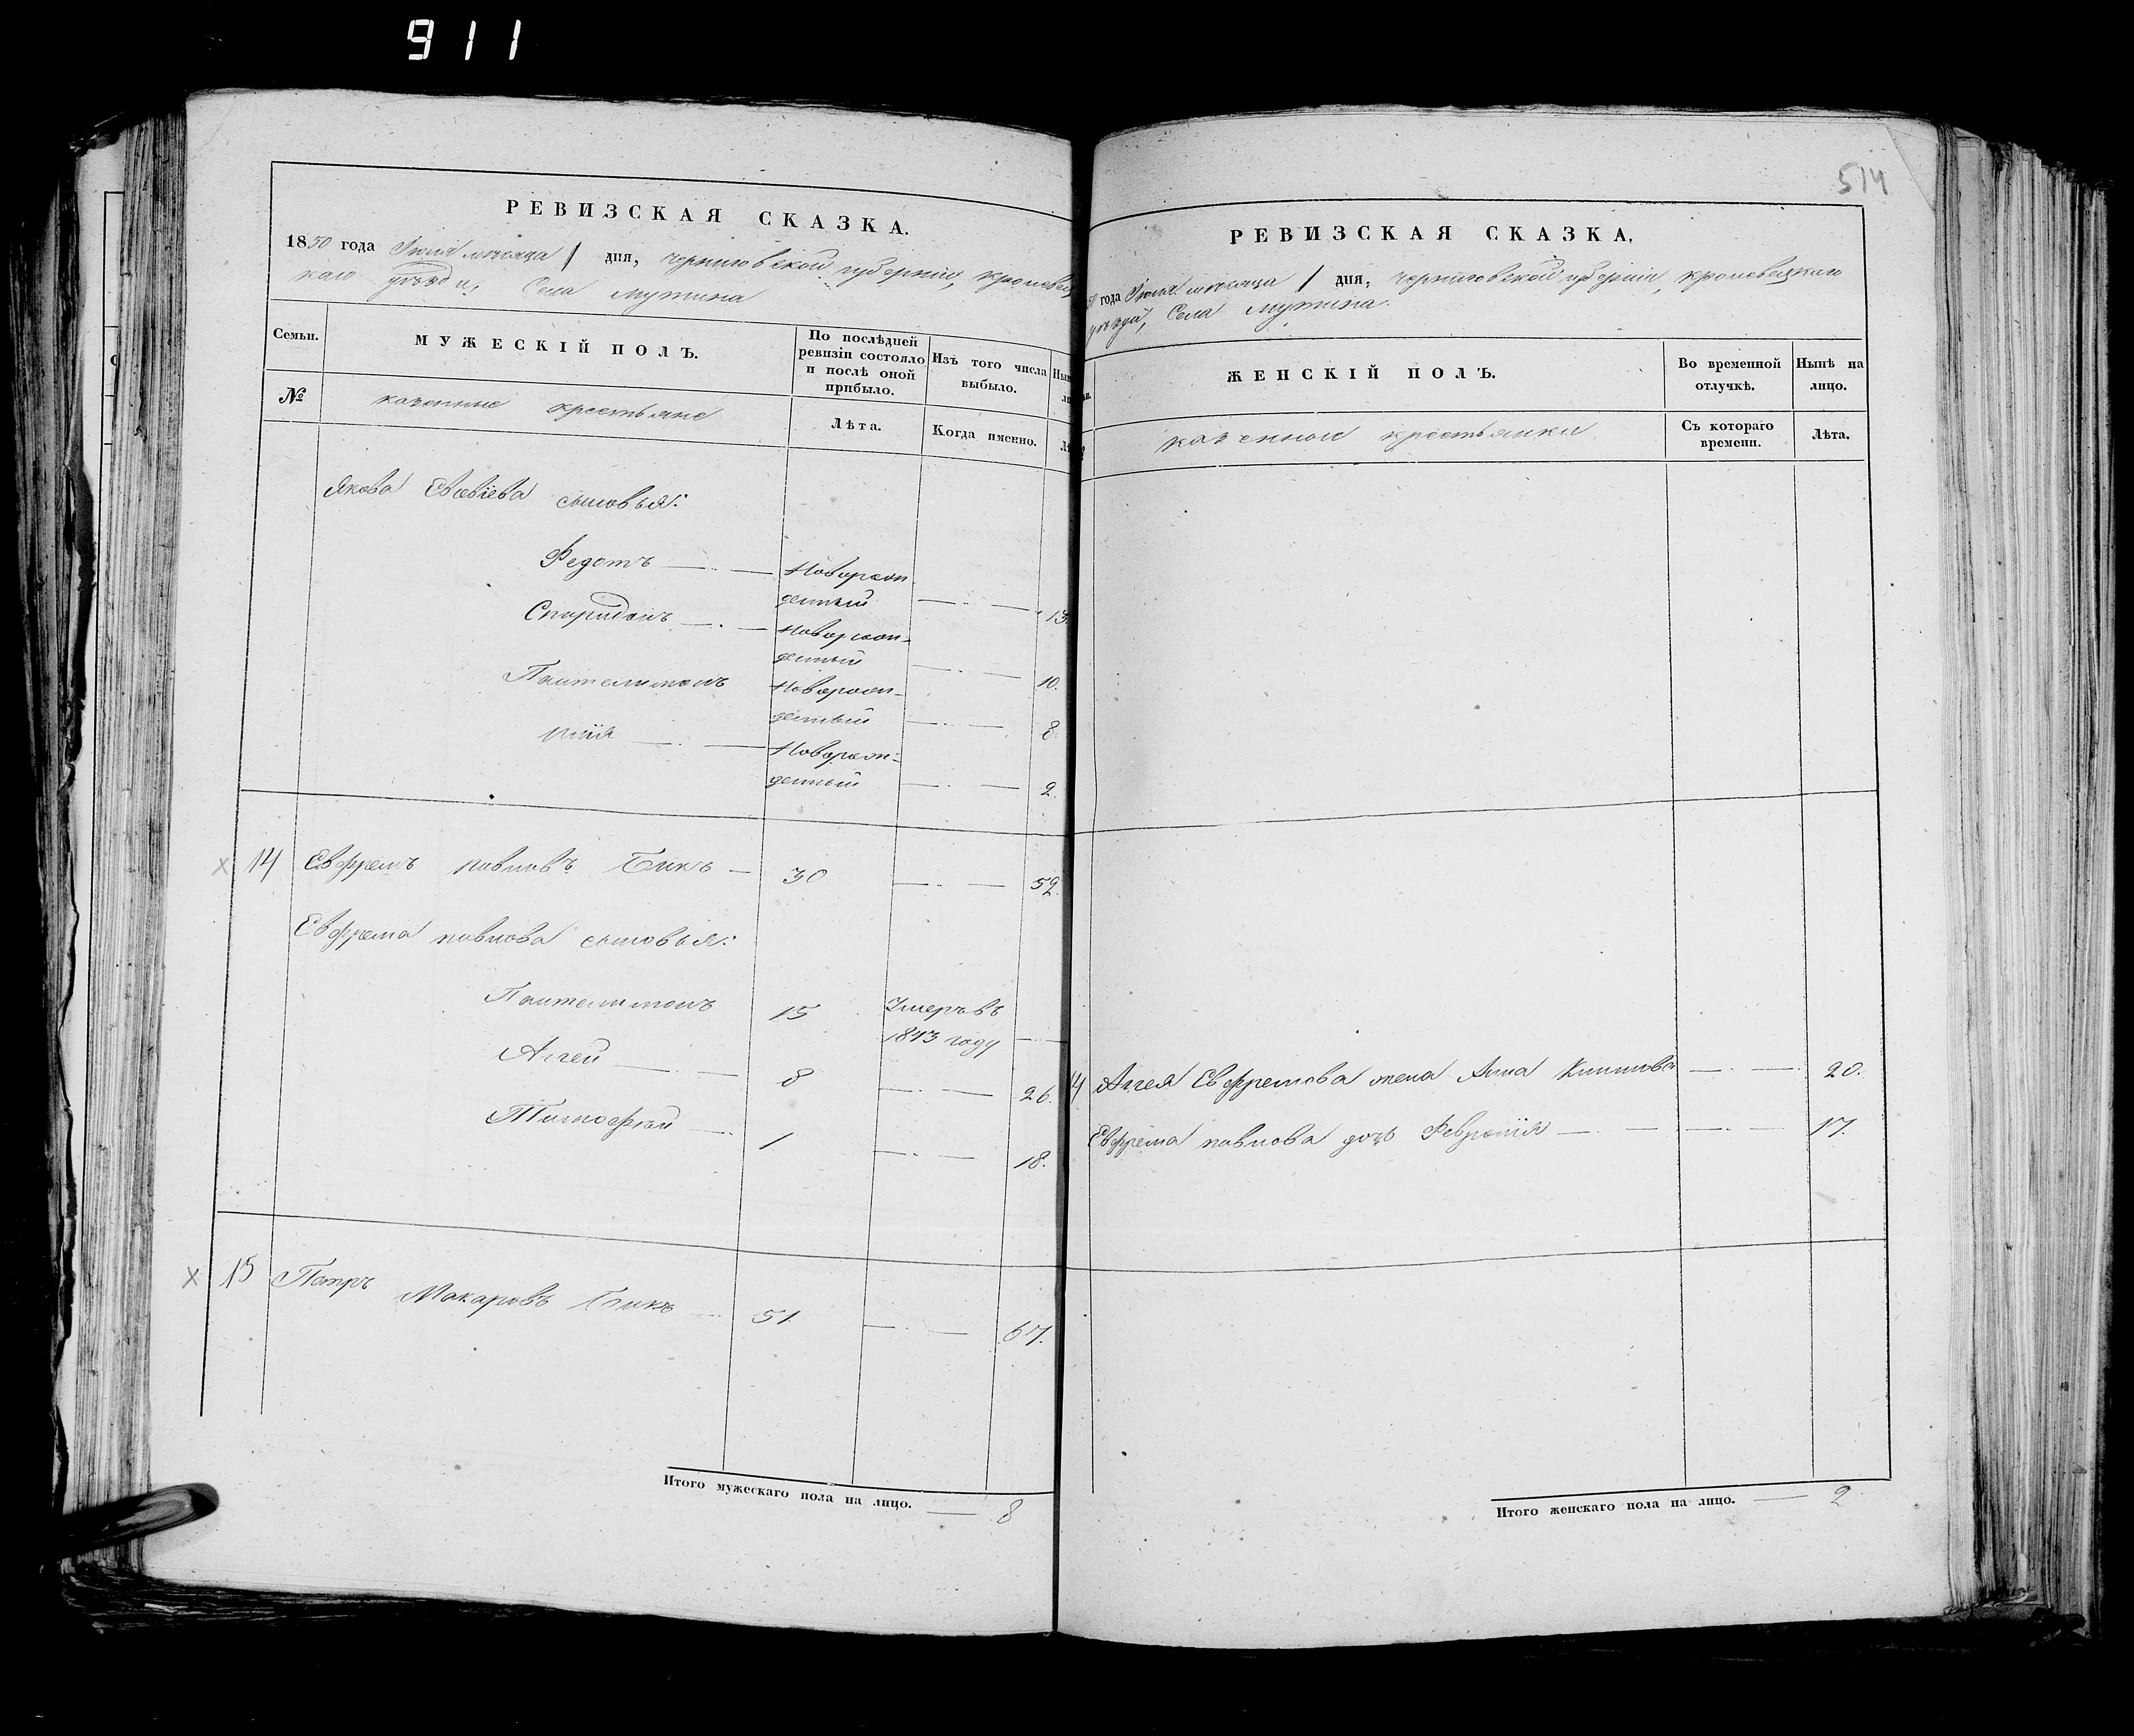 911
РЕВИЗСКАЯ СКАЗКА.
1850 года Іюля мѣсяца 1 дня, Черниговской губерніи, Кролевец
каго уѣзда, Села Мутина
Семьи.
МУЖЕСКІЙ ПОЛЪ.
По послѣдней
ревизіи состояло
и послѣ оной
прибыло.
Изъ того числа
выбыло.
№
казенные крестьяне
Лѣта.
Когда именно.
Якова Евсевіева сыновья:
Федотъ — Новорож
денный — 13.
Спиридонъ — Новорож-
денный — 10.
Пантелимонъ Новорож-
денный — 8.
Новорож-
денный — 2.
14 Евфремъ Павловъ Бикъ — 30 — 52.
Евфрема Павлова сыновья:
Пантелимонъ 15 Умеръ въ
1843 году —
Аггей — 8 — 26.
Тимофей — 1 — 18.
15 Петръ Макаровъ Бикъ — 51. — 67.
Итого мужескаго пола на лицо. — 8
514
РЕВИЗСКАЯ СКАЗКА.
года Іюля мѣсяца 1 дня, Черниговской губерніи, Кролевецкаго
уѣзда, Села Мутина.
ЖЕНСКІЙ ПОЛЪ.
Во временной
отлучкѣ.
Нынѣ на
лицо.
казенные крестьянки
Съ котораго
времени.
Лѣта.
Аггея Евфремова жена Анна Климова — 20.
Евфрема Павлова дочь Февронія — 17.
Итого женскаго пола на лицо. — 2